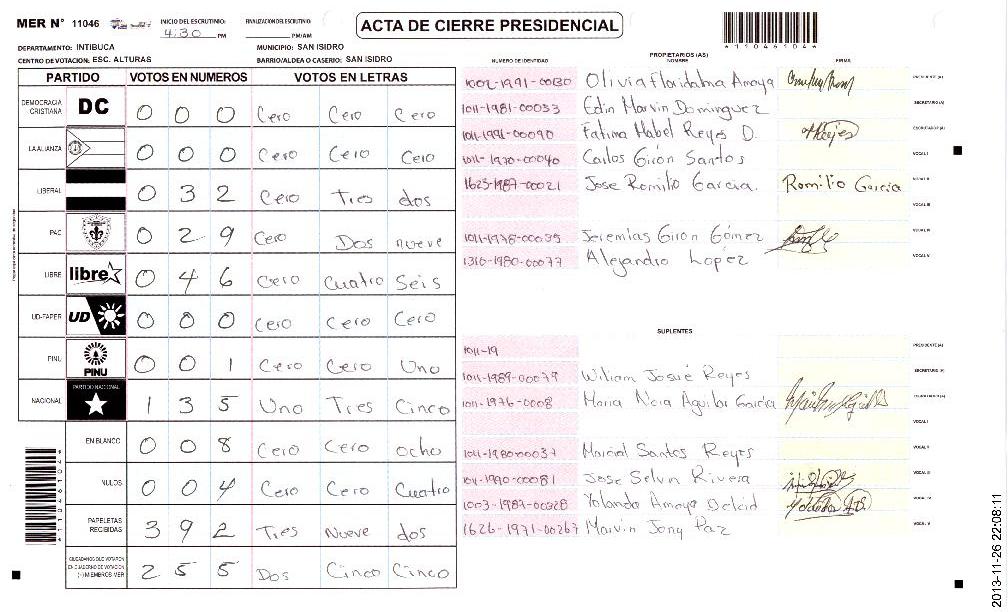 MER N° 11046
INICIO DEL ESCRUTINIO:
4:30 PM
FINALIZACION DEL ESCRUTINIO:
PM/AM
ACTA DE CIERRE PRESIDENCIAL
DEPARTAMENTO: INTIBUCA
MUNICIPIO: SAN ISIDRO
CENTRO DE VOTACION: ESC. ALTURAS
BARRIO/ALDEA O CASERIO: SAN ISIDRO
PARTIDO VOTOS EN NUMEROS VOTOS EN LETRAS
DEMOCRACIA CRISTIANA DC 0 0 0 Cero Cero Cero
LA ALIANZA 0 0 0 Cero Cero Cero
LIBERAL 0 3 2 Cero Tres dos
PAC 0 2 9 Cero Dos nueve
LIBRE libre 0 4 6 Cero Cuatro Seis
UD-FAPER UD 0 0 0 Cero Cero Cero
PINU PINU 0 0 1 Cero Cero Uno
NACIONAL PARTIDO NACIONAL 1 3 5 Uno Tres Cinco
EN BLANCO 0 0 8 Cero Cero ocho
NULOS 0 0 4 Cero Cero Cuatro
PAPELETAS RECIBIDAS 3 9 2 Tres Nueve dos
CIUDADANOS QUE VOTARON EN CUADERNO DE VOTACION (+) MIEMBROS MER 2 5 5 Dos Cinco Cinco
PROPIETARIOS (AS)
NUMERO DE IDENTIDAD NOMBRE FIRMA
1002-1991-00130 Olivia Floridalma Amaya PRESIDENTE (A)
1011-1981-00033 Edin Marvin Dominguez SECRETARIO (A)
1011-1991-00090 Fatima Mabel Reyes D. ESCRUTADOR (A)
1011-1970-00040 Carlos Girón Santos VOCAL I
1623-1987-00021 Jose Romilio Garcia. Romilio Garcia VOCAL II
VOCAL III
1011-1978-00035 Jeremias Giron Gómez VOCAL IV
1316-1980-00077 Alejandro Lopez VOCAL V
SUPLENTES
1011-19 PRESIDENTE (A)
1011-1989-00079 Wiliam Josué Reyes SECRETARIO (A)
1011-1976-0008 Maria Nora Aguilar Garcia ESCRUTADOR (A)
VOCAL I
1011-1980-00037 Marcial Santos Reyes VOCAL II
1011-1990-00081 Jose Selvin Rivera VOCAL III
1003-1987-00328 Yolanda Amaya Delcid VOCAL IV
1626-1971-00267 Marvin Jony Paz VOCAL V
2013-11-26 22:08:11